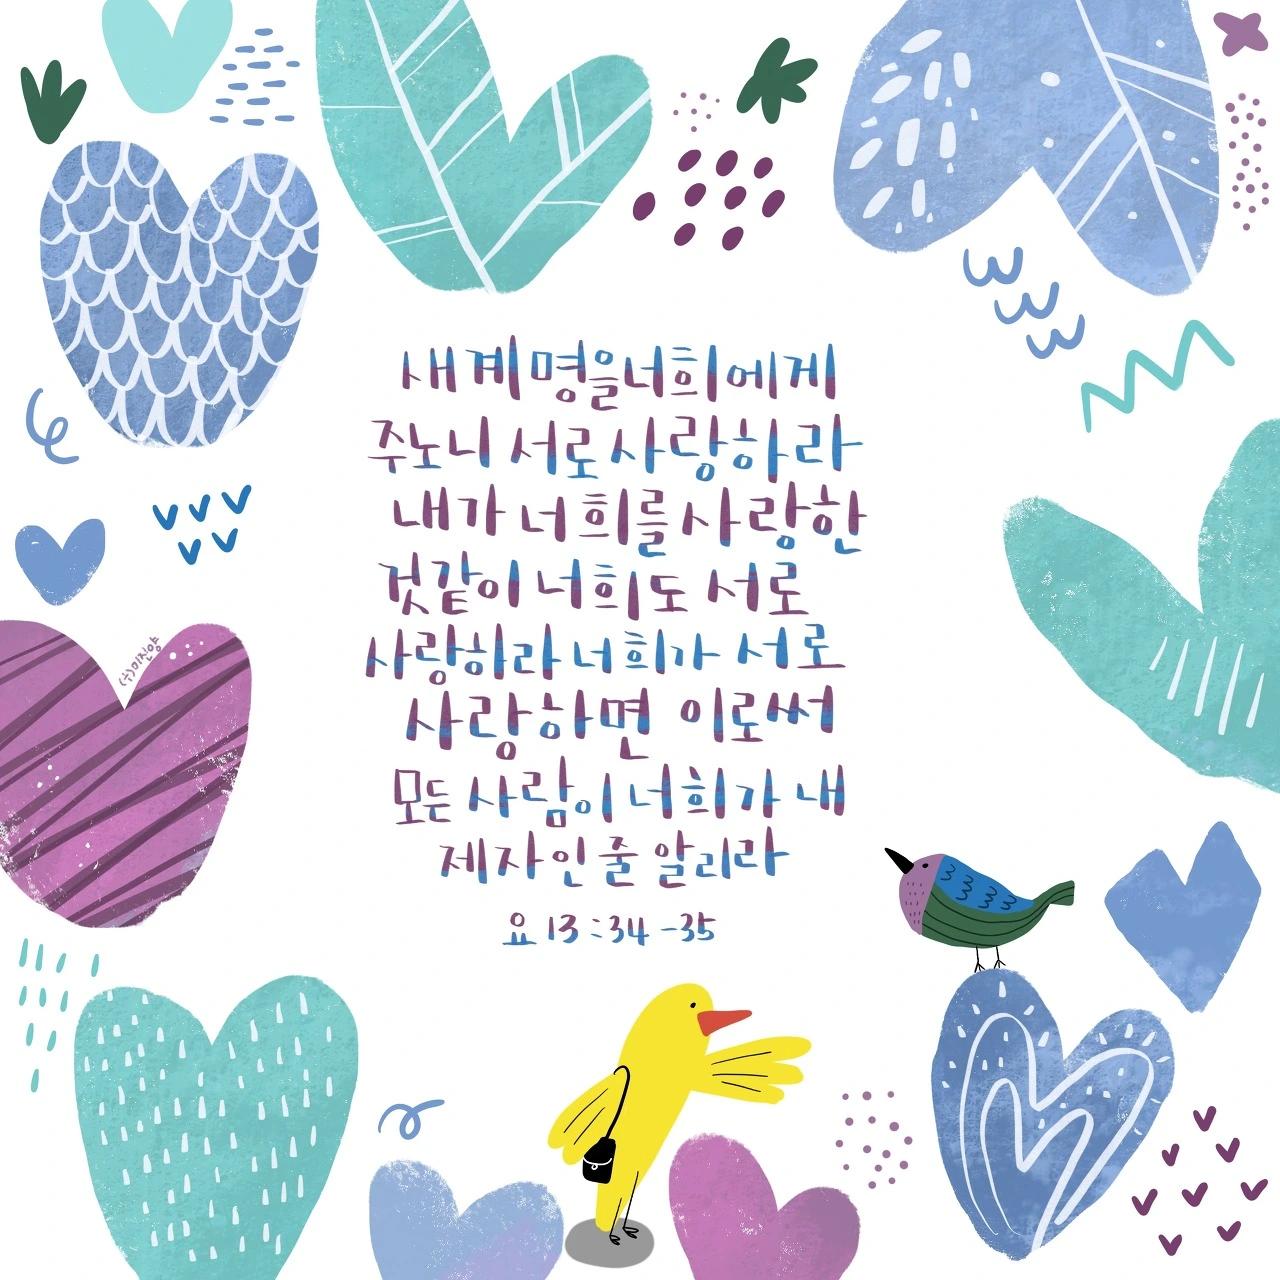 새 계명을 너희에게
주노니 서로 사랑하라
내가 너희를 사랑한
것 같이 너희도 서로
사랑하라 너희가 서로
사랑하면 이로써
모든 사람이 너희가 내
제자인 줄 알리라
요 13:34-35